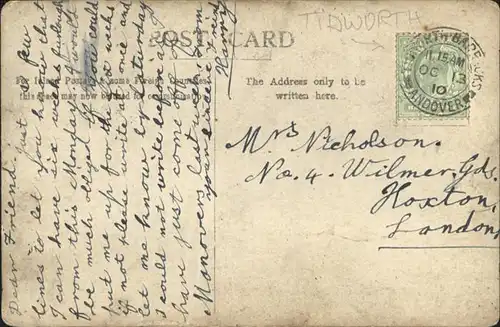 TIDWORTH
POST CARD
For Inland Postage
this space may now be used for
The Address only to be
written here.
TIDWORTH BARRACKS
11.15AM
OC 13
10
ANDOVER
Dear Friend just a few
lines to let you hear that
I can have six weeks furlough
from this Monday. I would
be much obliged if you could
put me up for the six weeks
if not please write at once and
let me know by Saturday
I could not write before as I
have just come off of
Manovers last week from
your sincere friend
Harry
Mrs Nicholson.
No. 4. Wilmer Gds.
Hoxton,
London,